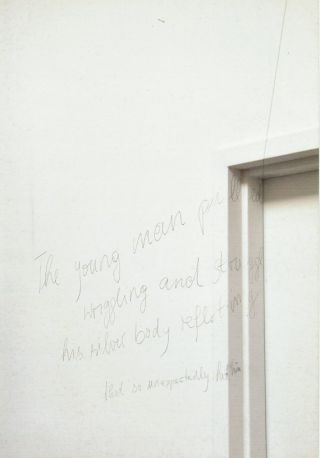 The young man pulled
wriggling and struggl
his silver body reflecting
that so unexpectedly